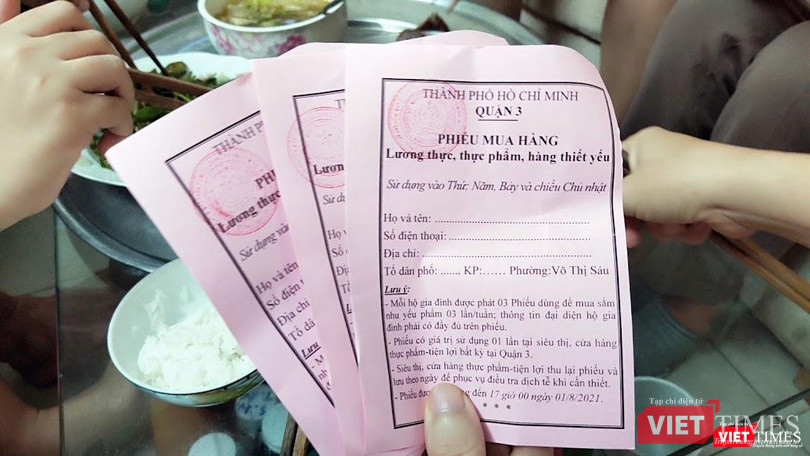 THÀNH PHỐ HỒ CHÍ MINH
QUẬN 3
PHIẾU MUA HÀNG
Lương thực, thực phẩm, hàng thiết yếu
Sử dụng vào Thứ: Năm, Bảy và chiều Chủ nhật
Họ và tên: ..................................................
Số điện thoại: .............................................
Địa chỉ: ......................................................
Tổ dân phố: ......, KP:...... Phường:Võ Thị Sáu
Lưu ý:
- Mỗi hộ gia đình được phát 03 Phiếu dùng để mua sắm
nhu yếu phẩm 03 lần/tuần; thông tin đại diện hộ gia
đình phải có đầy đủ trên phiếu.
- Phiếu có giá trị sử dụng 01 lần tại siêu thị, cửa hàng
thực phẩm-tiện lợi bất kỳ tại Quận 3.
- Siêu thị, cửa hàng thực phẩm-tiện lợi thu lại phiếu và
lưu theo ngày để phục vụ điều tra dịch tễ khi cần thiết.
- Phiếu đến 17 giờ 00 ngày 01/8/2021.
* * * *
THÀNH PHỐ
PHIẾ
Lương thực
Sử dụng vào
Họ và tên
Số điện
Địa chỉ
Tổ dân
Lưu ý
Lươ
Sử d
Họ v
Số đi
Địa c
Tổ dâ
Lưu
Tạp chí điện tử
VIETTIMES
VIETTIMES